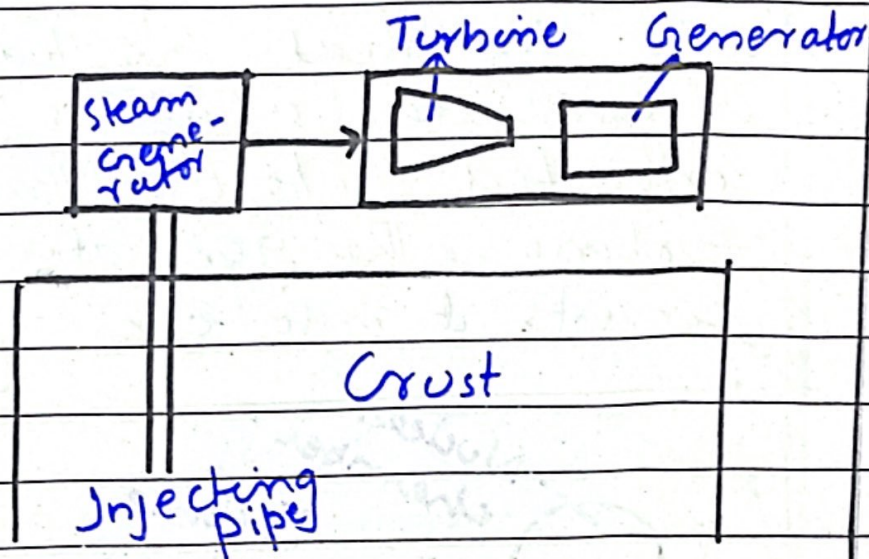 Turbine Generator
Steam
Gene-
rator
Crust
Injecting
pipe